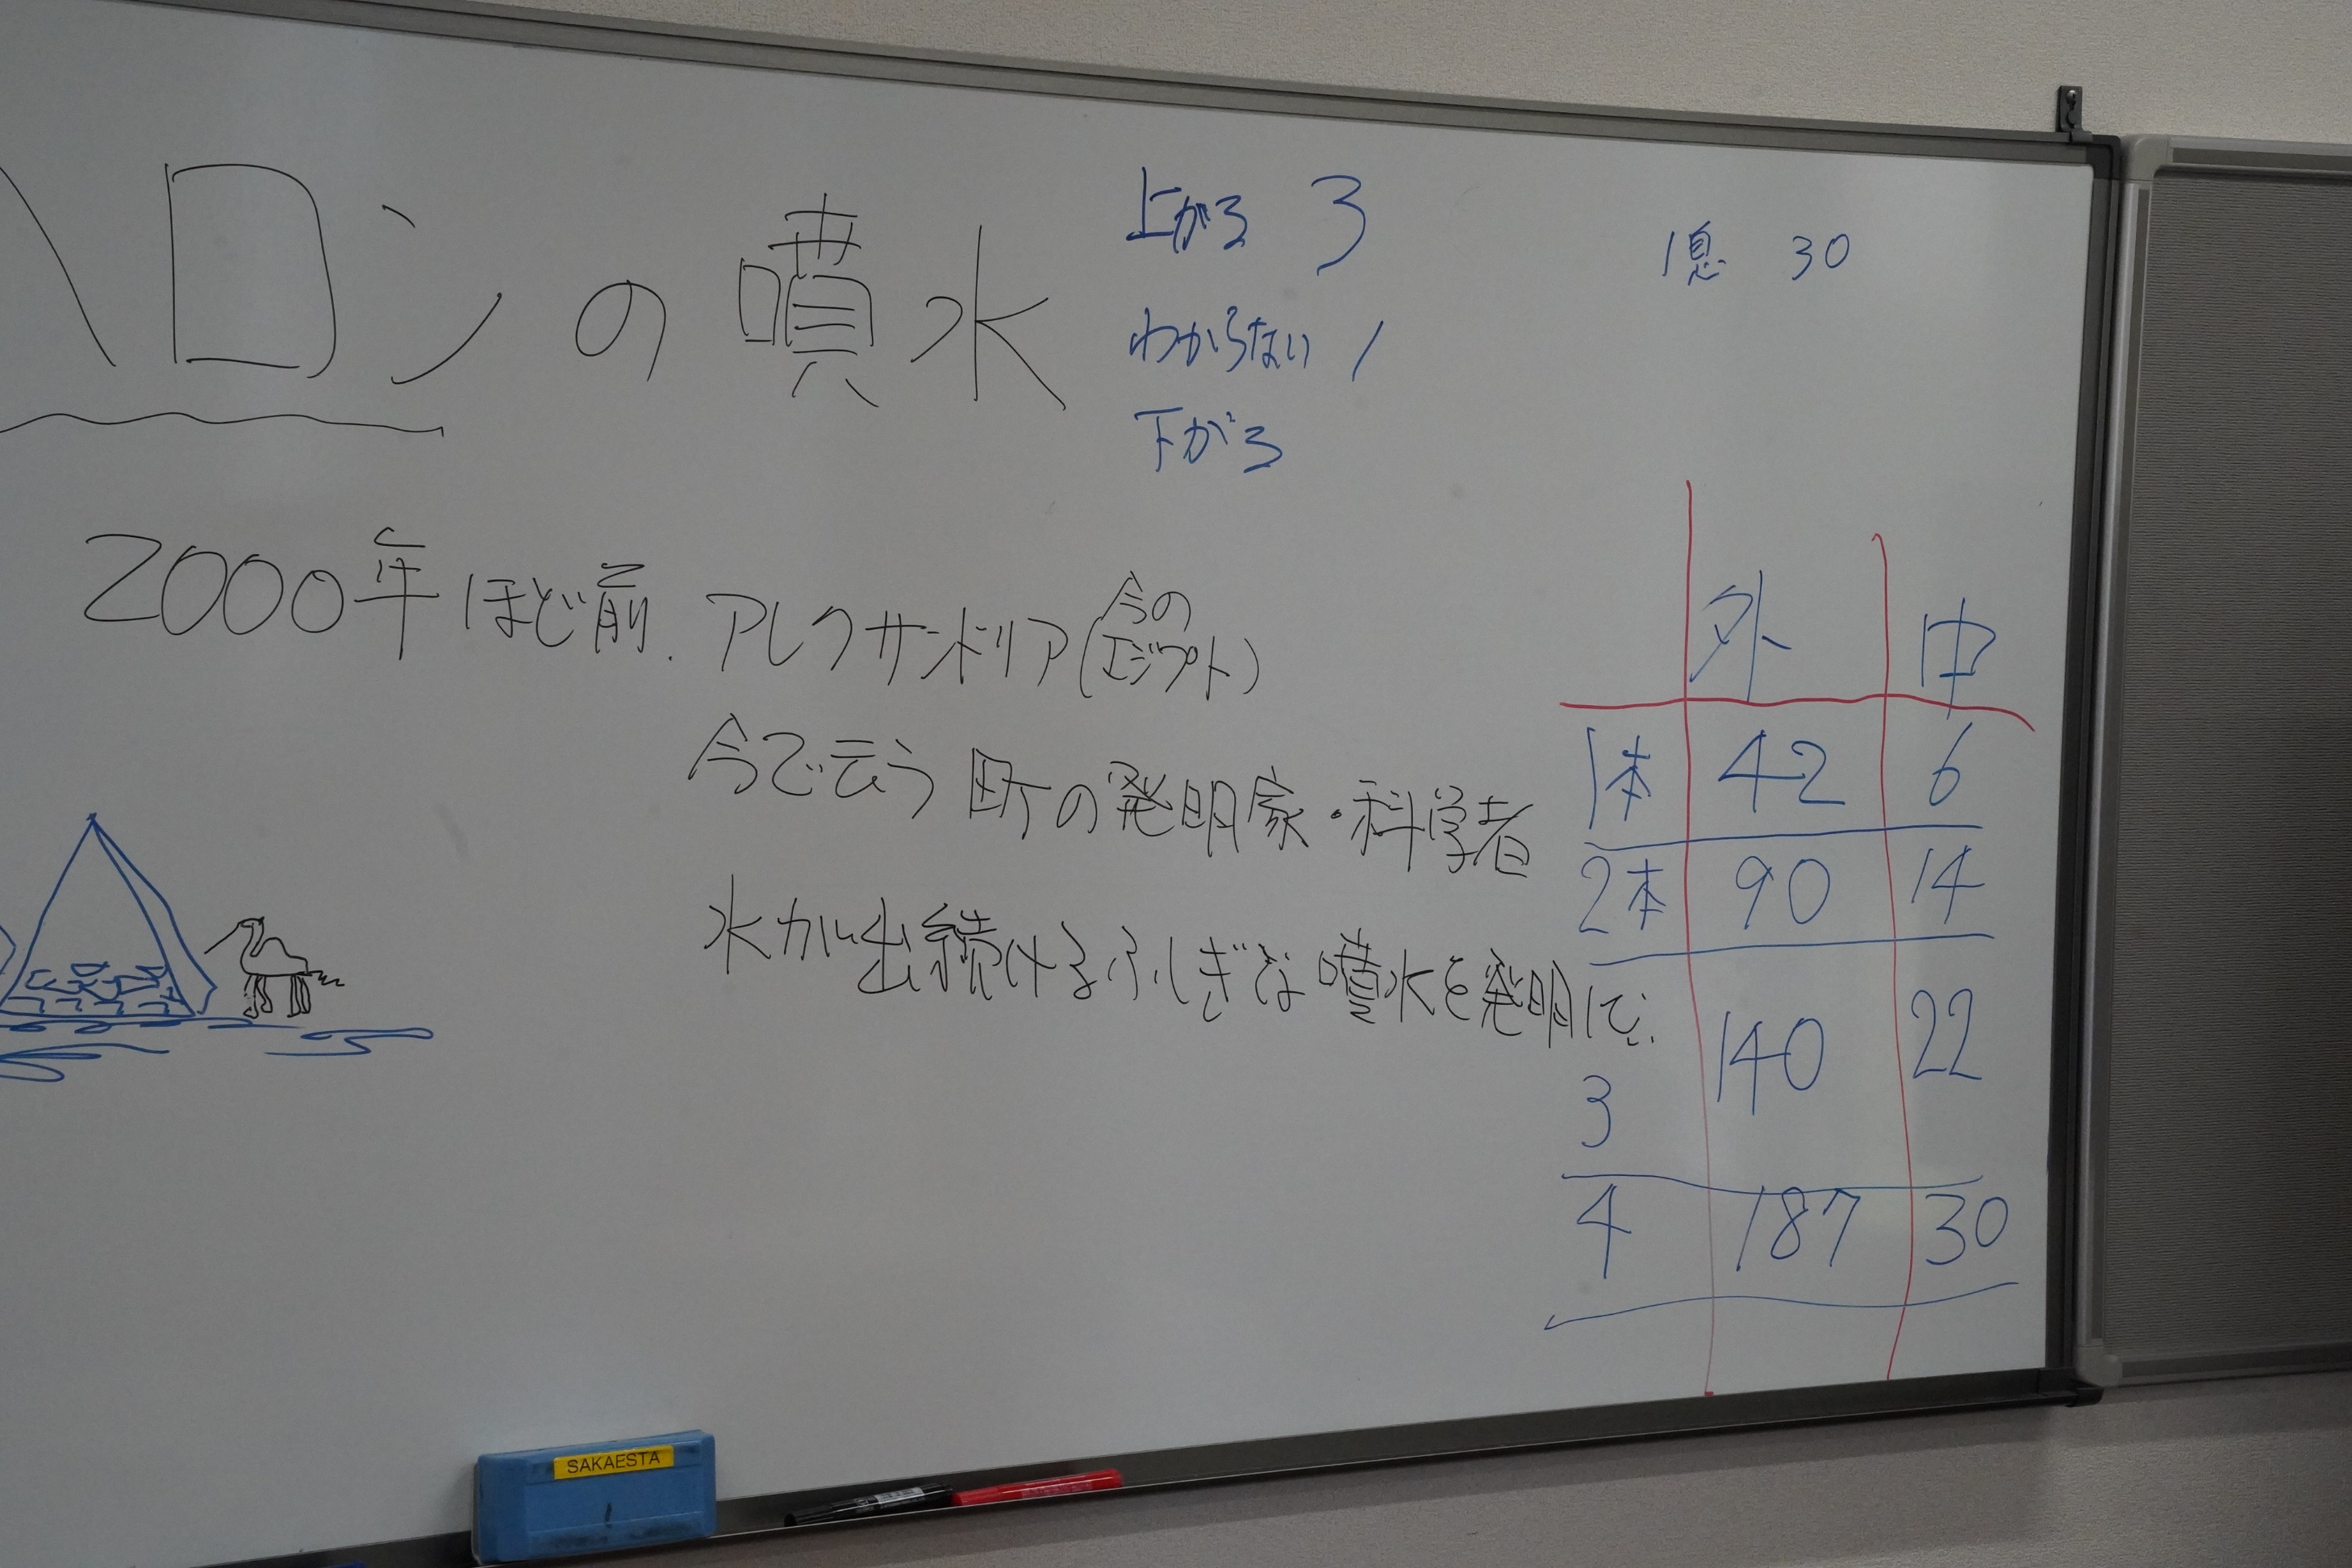 ヘロンの噴水
上がる 3
わからない 1
下がる
1息 30
2000年ほど前. アレクサンドリア(今のエジプト)
今で云う町の発明家・科学者
水が出続けるふしぎな噴水を発明して
外 中
1本 42 6
2本 90 14
3 140 22
4 187 30
SAKAESTA